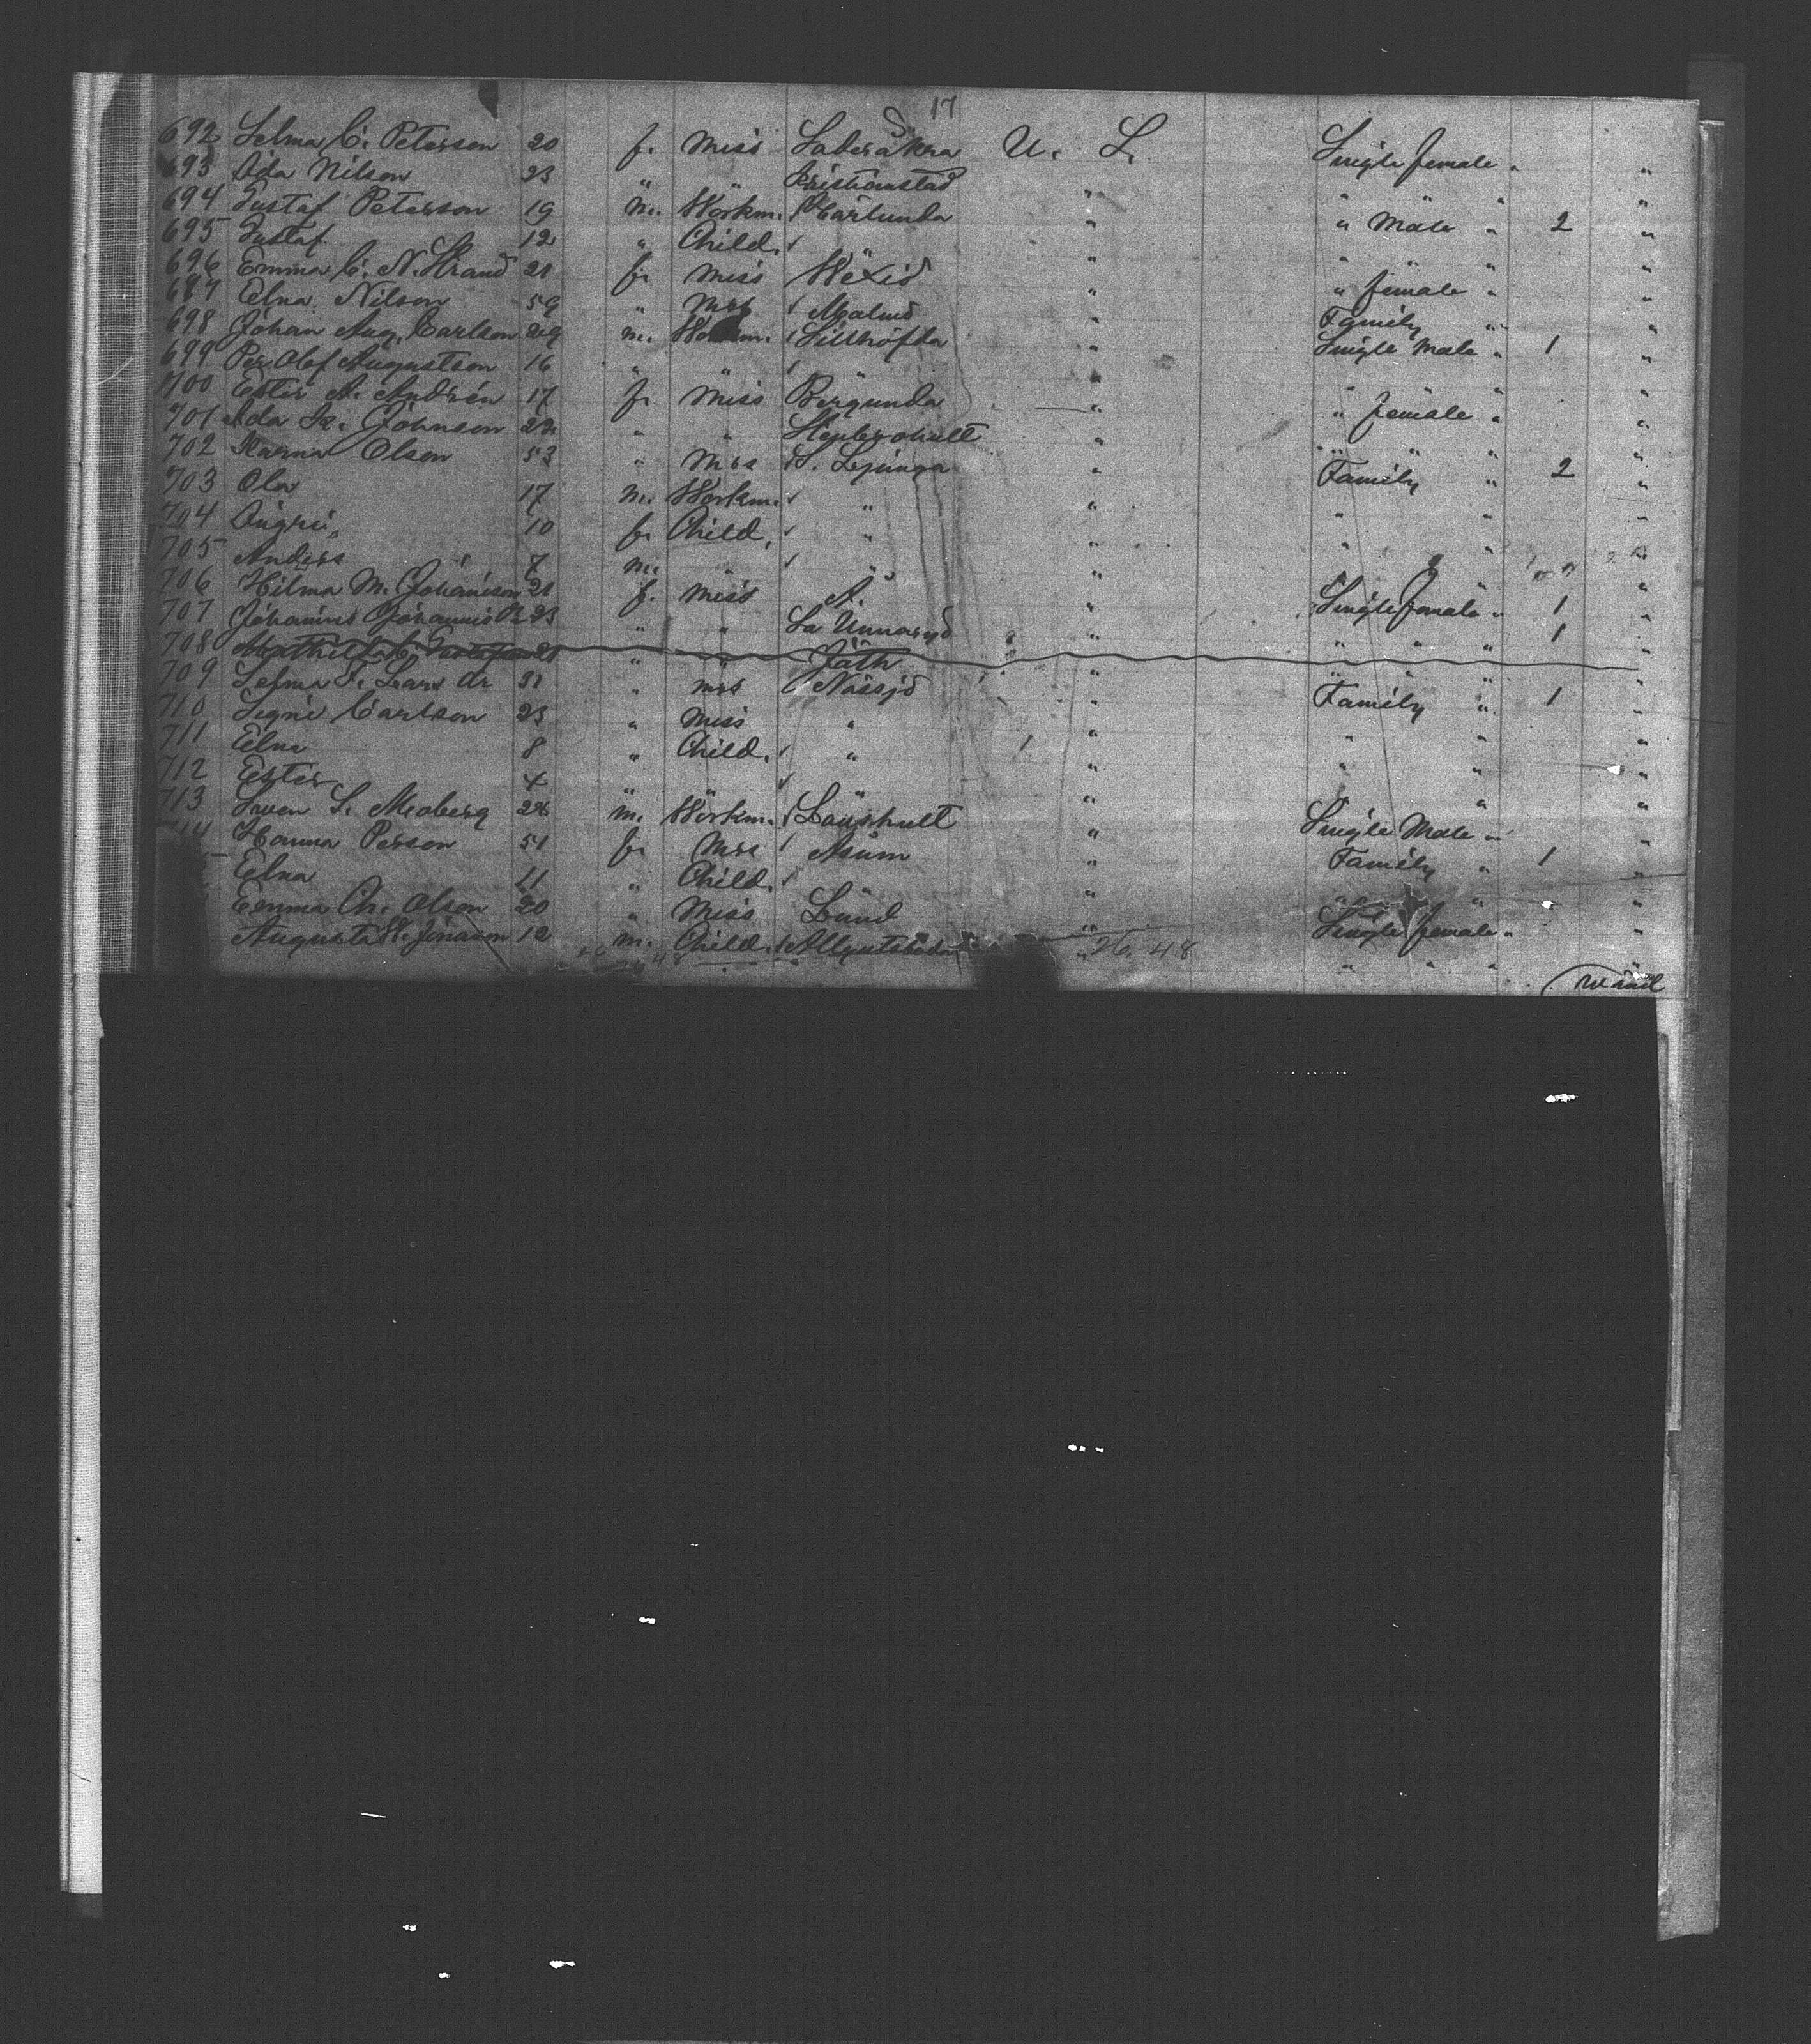 17
692 Selma C. Peterson 20 f. Miss Sadersåkra U. L. Single female "
693 Ada Nilson 23 " " Kristianstad " " " " "
694 Gustaf Peterson 19 m. Workm. Härlunda " " Male " 2 "
695 Gustaf 12 " Child. " " " " "
696 Emma C. N. Strand 21 f. Miss Wexiö " " female " "
697 Elna Nilson 59 " Mrs Malmö " Family " "
698 Johan Aug. Carlson 29 m. Workm. " Single Male " 1 "
699 Per Olof Augustson 16 " " " " " " " "
700 Ester A. Andrén 17 f. Miss Bergunda " " female " "
701 Ada K. Johnson 22 " " Stenbrohult " " " " "
702 Karna Olson 53 " Mrs S. Ljunga " Family " 2 "
703 Ola 17 m. Workm. " " " " "
704 Ingrid 10 f. Child. " " " " "
705 Anders 7 m. " " " " " "
706 Hilma M. Johanison 21 f. Miss A. " Single female " 1 "
707 23 " " La Unnaryd " " " " 1 "
708 21 " " Jäth " " " " "
709 Selma F. Lars dr 31 " Mrs Nässjö " Family " 1 "
710 Signe Carlson 23 " Miss " " " " "
711 Elna 8 " Child. " " " " "
712 Ester 4 " " " " " "
713 Swen S. Moberg 28 m. Workm. Lönshult " Single Male "
714 Hanna Person 51 f. Mrs Åsum " Family " 1 "
Elna 11 " Child. " " " "
Emma Ch. Olson 20 " Miss Lund " Single female " "
August W. Jonason 12 m. Child. Älgutsboda " 26. 48 " " " "
Wänd